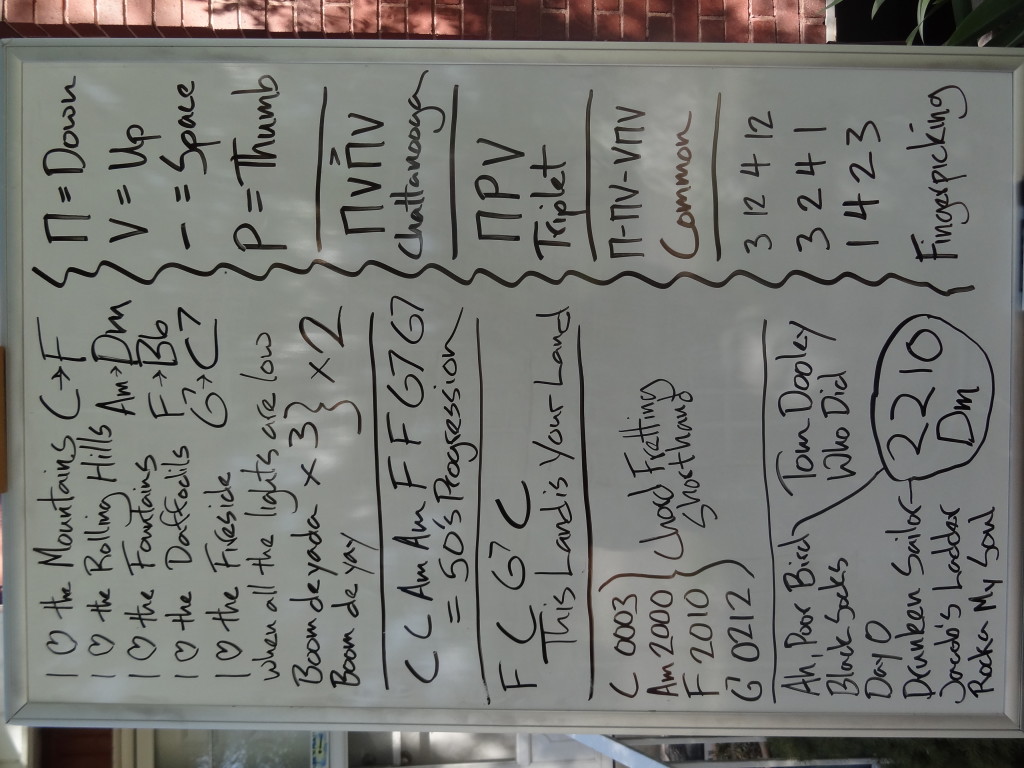 I ♡ the Mountains C→F
I ♡ the Rolling Hills Am→Dm
I ♡ the Fountains
I ♡ the Daffodils F→Bb
I ♡ the Fireside G7→C7
when all the lights are low
Boom de yada x 3 } x 2
Boom de yay
C C Am Am F F G7 G7
= 50's Progression
F C G7 C
This Land is Your Land
C 0003
Am 2000
F 2010
G7 0212
} Chord Fretting
Shorthand
Ah, Poor Bird
Black Socks
Day O
Drunken Sailor
Jacob's Ladder
Rocka My Soul
Tom Dooley
Who Did
2210
Dm
Π = Down
V = Up
- = Space
P = Thumb
>
Π V Π V
Chattanooga
Π P V
Triplet
Π-ΠV-VΠV
Common
3 12 4 12
3 2 4 1
1 4 2 3
Fingerpicking